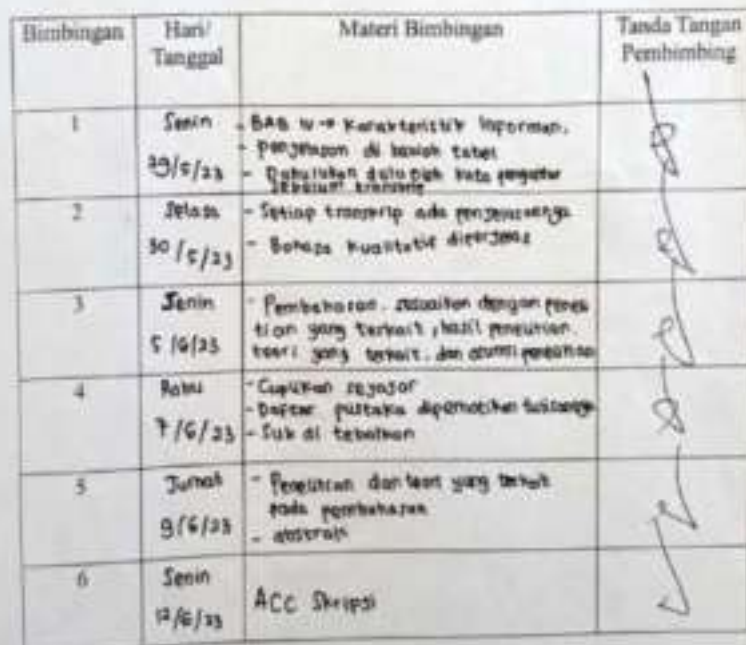 Bimbingan
Hari/
Tanggal
Materi Bimbingan
Tanda Tangan
Pembimbing
1
Senin
29/5/23
- BAB IV → Karakteristik Informan.
- penjelasan di bawah tabel
- Dahulukan dulu oleh kata pengantar
sebelum transkrip
2
Selasa
30/5/23
- Setiap transkrip ada penjelasannya
- Bahasa kualitatif diperjelas
3
Senin
5/6/23
- Pembahasan. sesuaikan dengan peneli
tian yang terkait, hasil penelitian.
teori yang terkait. dan asumsi penelitian
4
Rabu
7/6/23
- Cupikan sejajar
- Daftar pustaka diperhatikan tulisannya
- Sub di tebalkan
5
Jumat
9/6/23
- Penelitian dan teori yang terkait
pada pembahasan
- abstrak
6
Senin
12/6/23
ACC Skripsi